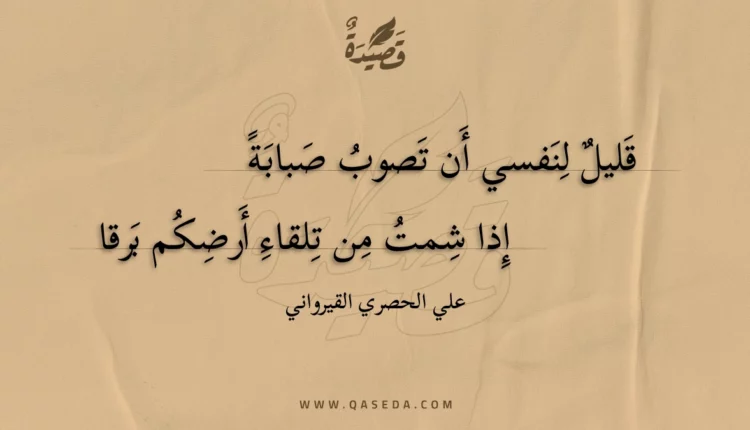 قَصِيْدَةٌ
قَليلٌ لِنَفسي أَن تَصوبُ صَبابَةً
إِذا شِمتُ مِن تِلقاءِ أَرضِكُم بَرقا
علي الحصري القيرواني
WWW.QASEDA.COM